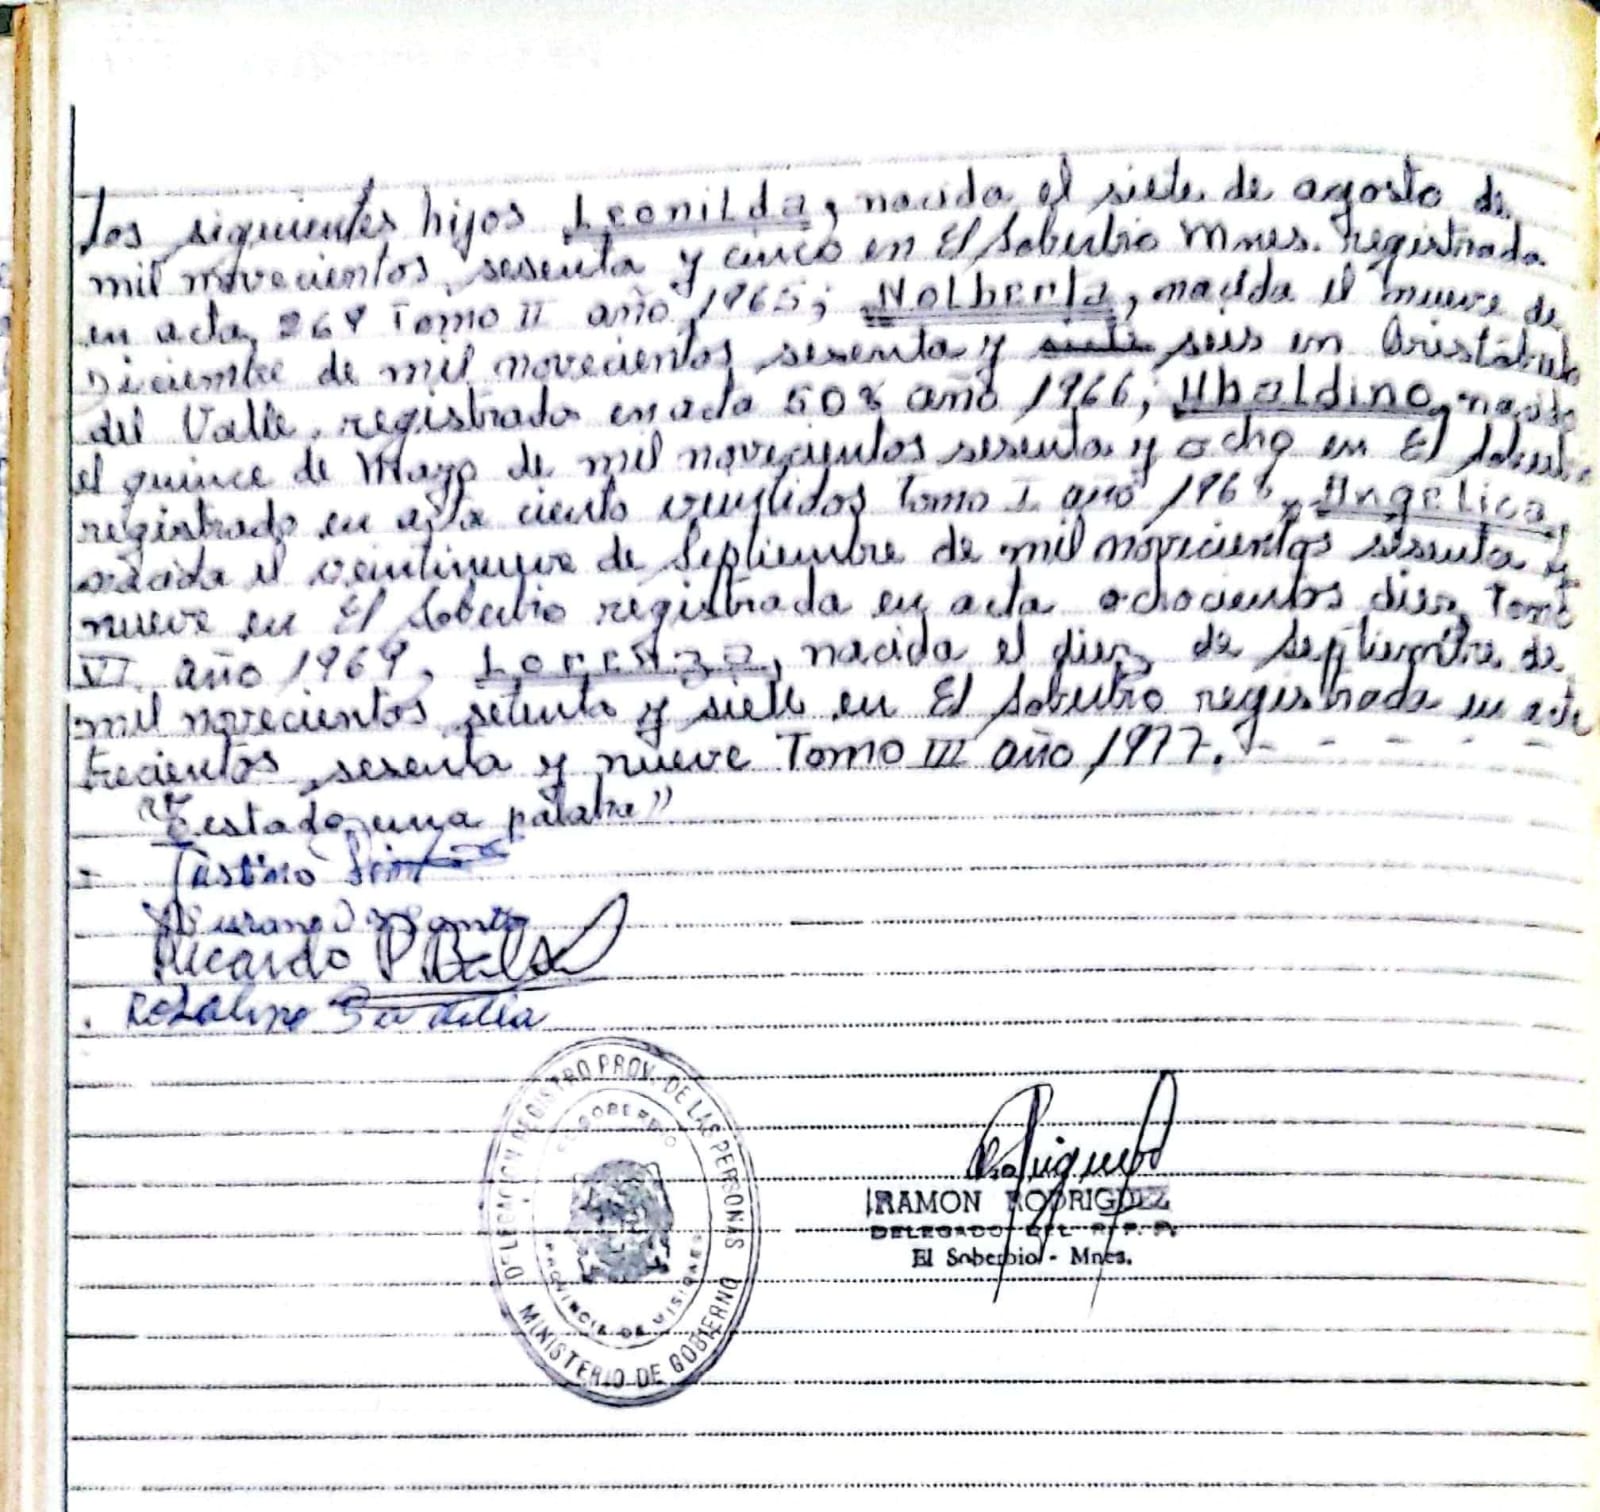 los siguientes hijos Leonilda, nacida el siete de agosto de
mil novecientos sesenta y cinco en El Soberbio Mnes. registrada
en acta 268 Tomo II año 1965; Nolberta, nacida el nueve de
Diciembre de mil novecientos sesenta y siete seis en Aristóbulo
del Valle, registrada en acta 508 año 1966; Ubaldino, nacido
el quince de Mayo de mil novecientos sesenta y ocho en El Soberbio
registrado en acta ciento veintidos Tomo I año 1968, Angelica,
nacida el veintinueve de Septiembre de mil novecientos sesenta y
nueve en El Soberbio registrada en acta ochocientos diez Tomo
VI año 1969, Lorenza, nacida el diez de Septiembre de
mil novecientos setenta y siete en El Soberbio registrada en acta
trecientos sesenta y nueve Tomo III año 1977. - - - - - -
"Testado una palabra"
Justino
Ricardo P.
DELEGACION REGISTRO PROV. DE LAS PERSONAS
EL SOBERBIO
PROVINCIA DE MISIONES
MINISTERIO DE GOBIERNO
RAMON RODRIGUEZ
DELEGADO DEL R. P. P.
El Soberbio - Mnes.